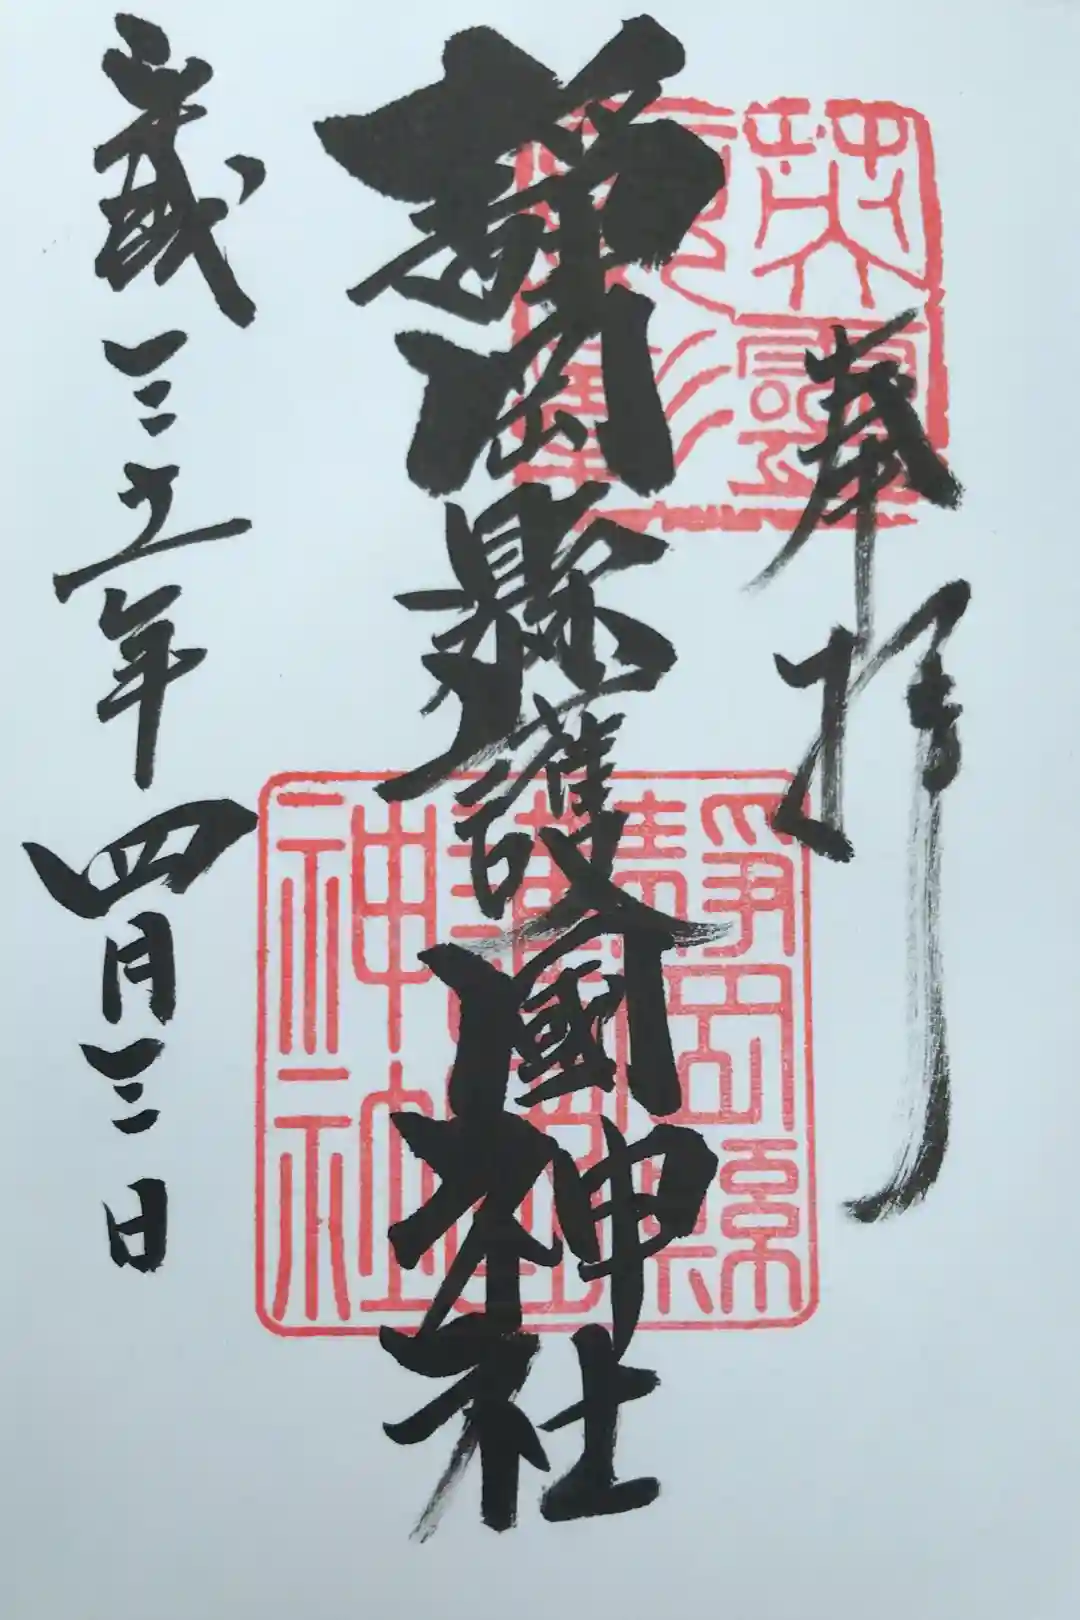 奉拝
英靈
顯彰
静岡縣護國神社
静岡縣
護國
神社
歳三五年四月三日